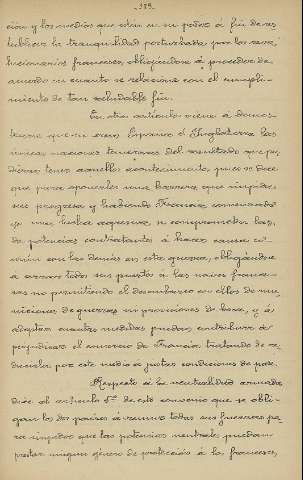 ción y los medios que están en su poder á fin de res
tablecer la tranquilidad perturbada por los revo
lucionarios franceses, obligándose á proceder de
acuerdo en cuanto se relacione con el cumpli-
miento de tan saludable fin.
En otro artículo viene á demos-
trarse que no eran España é Inglaterra las
únicas naciones temerosas del resultado que pu
dieran tener aquellos acontecimientos, pues se dice
que para oponerles una barrera que impida
sus progresos y habiendo Francia comenzado
ya una lucha agresiva, se comprometen las
dos potencias contratantes á hacer causa co-
mún con los demás en esta guerra, obligándose
á cerrar todos sus puertos á las naves france-
sas no permitiendo el desembarco en ellos de mu
niciones de guerra ni provisiones de boca, y á
adoptar cuantas medidas puedan contribuir á
perjudicar el comercio de Francia tratando de re
ducirla por este medio á justas condiciones de paz.
Respecto á la neutralidad armada
dice el artículo 5º de este convenio que se obli-
gan los dos países á reunir todos sus esfuerzos pa
ra impedir que las potencias neutrales puedan
prestar ningún género de protección á los franceses,